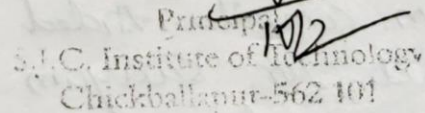 Principal
S.J.C. Institute of Technology
Chickballapur-562 101